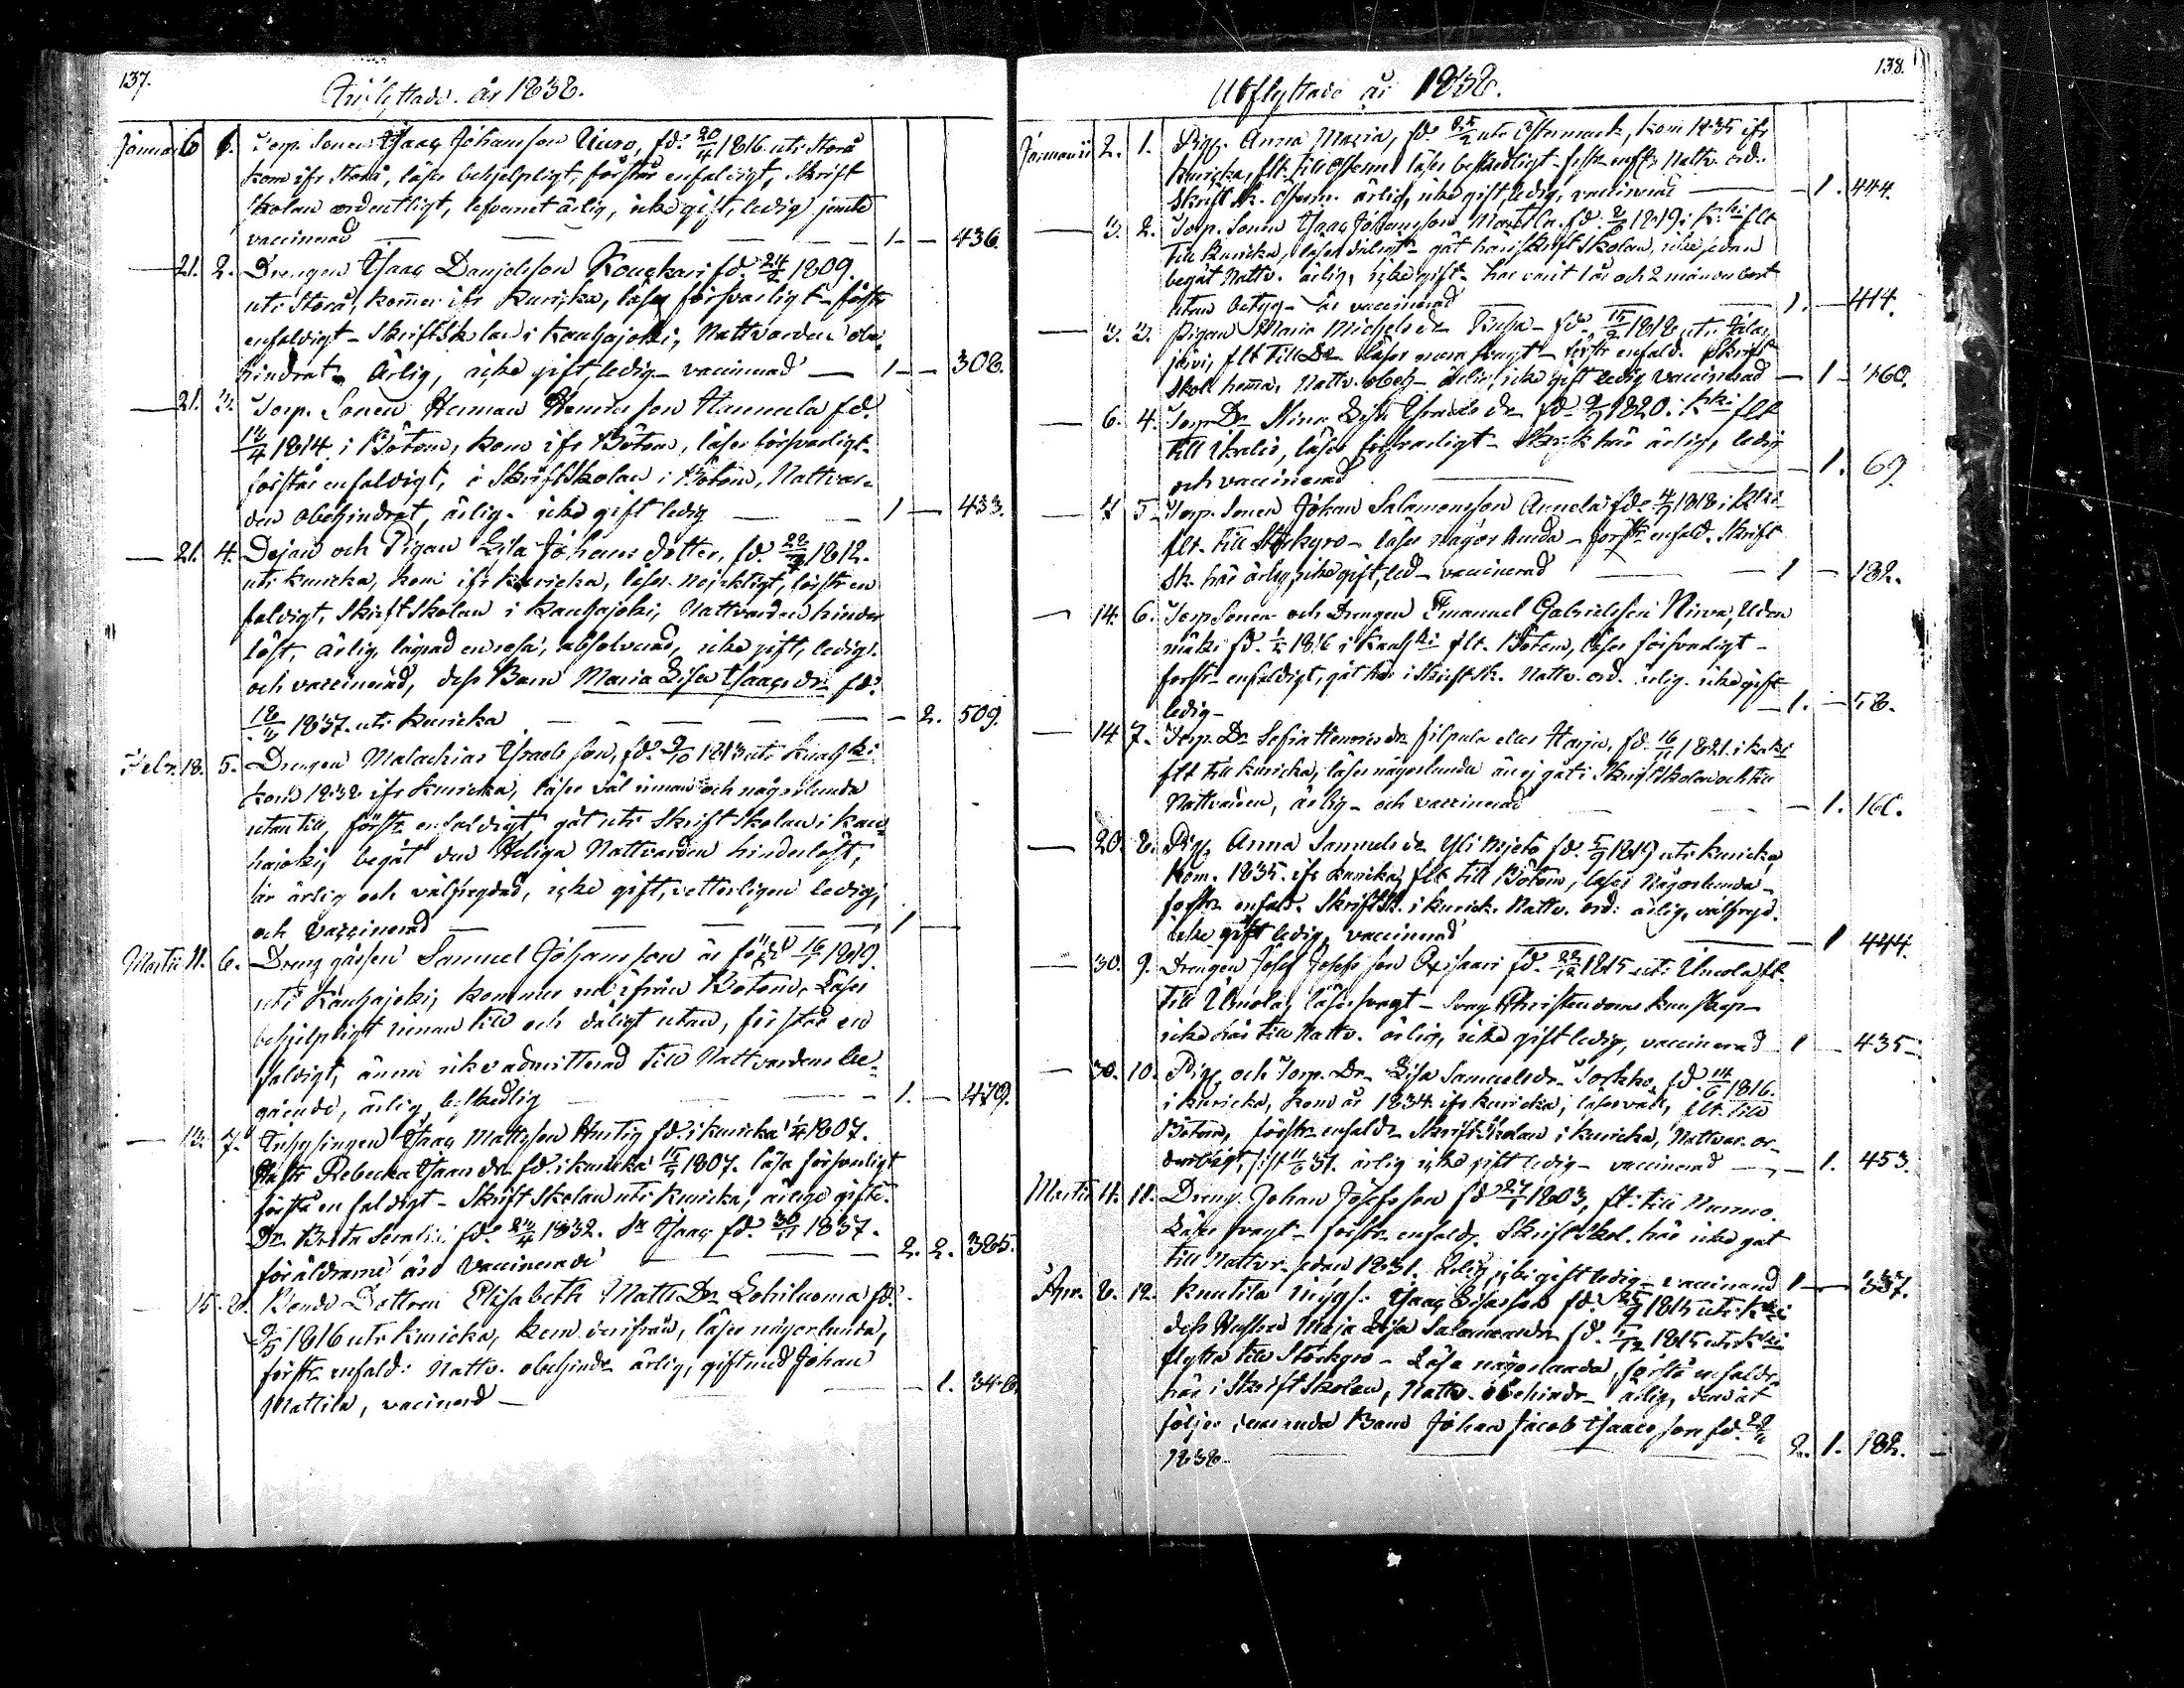 137.
Inflyttade år 1838.
Januari 6 1. Torp. Sonen Isaac Johansson Uuro, fd. 20/4 1816 uti Storå
kom ifr Storå, läser behjelpligt, förstår enfaldigt, Skrift
Skolan ordentligt, lefvernet ärlig, icke gift, ledig jemte
vaccinerad 1 — 436.
— 21. 2. Drengen Isaac Danjelsson Kouckari fd. 24/2 1809.
uti Storå, kommer ifr Kuricka, läser försvarligt förstr
enfaldigt - Skriftskolan i Kauhajoki, Nattvarden obe,
hindrat. Ärlig, icke gift, ledig - vaccinerad — 1 — 308.
— 21. 3. Torp. Sonen Herman Henricsson Hannula fd.
14/4 1814 i Bötom, kom ifr Bötom, läser försvarligt
förstår enfaldigt, i Skriftskolan i Bötom, Nattvar=
den obehindrat, ärlig. icke gift ledig 1 — 433.
— 21. 4. Dejan och Pigan Lisa Johans dotter, fd. 28/2 1812.
uti Kuricka, kom ifr Kuricka, läser nöjaktigt, förstr en
faldigt, Skriftskolan i Kauhajoki, Nattvarden hinder
löst, ärlig, lägrad en resa, absolverad, icke gift, ledig
och vaccinerad, dess Barn Maria Lisa Isaacs dr fd.
1837. uti Kuricka — 2. 509.
Febr. 18. 5. Drengen Malachias Israels son, fd. 9/10 1813 uti Kauhki
kom 1832 ifr Kuricka, läser väl innan och någorlunda
utan till, förstr enfaldigt, gåt uti Skriftskolan i Kau=
hajoki, begåt den Heliga Nattvarden hinderlöst,
är ärlig och välfregdad, icke gift, vetterligen ledig,
och vaccinerad 1 —
Martii 11. 6. Dreng gåssen Samuel Johansson är född 1819.
uti Kauhajoki, kommer nu ifrån Bötom. Läser
behjelpligt innan till och dåligt utan, förstår en
faldigt, ännu icke admitterad till Nattvardens be=
gående, ärlig, beskedlig 1. — 479.
— 13. 7. Inhysingen Isaac Mattsson Hurtig fd. i Kuricka 1807.
Hustr Rebecka Isaacs dr fd. i Kuricka 1807. läsa försvarligt
förstå enfaldigt - Skriftskolan uti Kuricka, ärlige gifte.
Dr. Brita Serafia fd. 24/4 1832. Sn Isaac fd. 30/11 1837.
föräldrarne äro Vaccinerade 2. 2. 385.
— 15. 8. Bonde Dottren Elisabeth Matts Dr Lohiluoma fd.
1816 uti Kuricka, kom derifrån, läser någorlunda,
förstr enfald: Nattv. obehindr ärlig, gift med Johan
Mattila, vacinerd — 1. 346.
138.
Utflyttade år 1838.
Januarii 2. 1. Pig. Anna Maria, fd. uti Östermark, kom 1835 ifr
Kuricka, flt. till Österm läser beskedligt förstr enft Nattv. ord.
Skriftsk. Österm. ärlig, icke gift, ledig, vaccinerad — 1. 444.
— 3. 2. Torp. Sonen Isaac Johansson Mantila fd. 1819 i K:ki flt
till Kuricka, läser dåligt - gåt här i skriftskolan, icke sedan
begåt Nattv. ärlig, icke gift - har varit 1 år och 2 månar bort
utan betyg - är vaccinerad 1. — 414.
— 3. 3. Pigan Maria Michels dr fd. 15/2 1818 uti Jalas
järvi, flt till Do läser svagt - förstr enfald. Skrift
Skol hemma, Nattv. obeh - ärlig, icke gift ledig vaccinerad — 1 — 460.
— 6. 4. Torp Dr Nina Lisa Israels dr fd. 1820 i kki flt
till Ikalis, läser försvarligt - Skrsk här ärlig, ledig
och vaccinerad 1. 69.
— 5. Torp. Sonen Johan Salamonsson Annela fd. 1818 i Kki
flt. till Storkyro - läser någorlunda - förstr enfald. Skrift
Sk. här ärlig, icke gift, led - vaccinerad 1 — 182.
— 14. 6. Torp Sonen och Drengen Emanuel Gabrielsson Nirva,
fd. 1816 i Kauhki flt. Bötom, läser försvarligt -
förstr enfaldigt, gåt här i Skriftsk. Nattv. ord. ärlig. icke gift
ledig - 1. — 58.
— 14 7. Torp. Dr Sofia Henrics dr Filpula eller Harju, fd. 16/11 1821 i kki
flt till Kuricka, läser någorlunda än ej gåt i Skriftskolan och till
Nattvarden, ärlig - och vaccinerad — 1. 166.
— 20. 8. Pig. Anna Samuels dr fd. 5/9 1819 uti Kuricka,
Kom. 1835. ifr Kuricka, flt till Bötom, läser Någorlunda -
förstr enfald. Skriftsk. i Kurick. Nattv. ord: ärlig, välfregd.
icke gift ledig, vaccinerad — 1 444.
— 30. 9. Drengen Josef Josefs son fd. 22/12 1815 uti Ilmola flt
till Ilmola, läser svagt - svag Christendoms kunskap -
icke här till Nattv. ärlig, icke gift ledig, vaccinerad — 1 — 435
— 30. 10. Pig. och Torp. Dr Lisa Samuels dr fd. 14/6 1816.
i Kuricka, kom år 1834 ifr Kuricka, läser väl, flt. till
Bötom, förstr enfald. Skriftskolan i Kuricka, Nattvar. or-
dentligt, sist 11/6 37. ärlig icke gift ledig - vaccinerad — 1. 453.
Martii 11. 11. Dreng. Johan Josefsson fd 27/7 1803, fl: till Nurmo.
Läser svagt - förstr enfald. Skrift Skol. här icke gåt
till Nattvr sedan 1831. ärlig, icke gift ledig - vaccinerad 1 — 337.
Apr. 8. 12. Knutila inhys: Isaac fd. 25/9 1815 uti Kki
dess Hustru Maja Lisa Salomonsdr fd. 1815 uti Kki
flytta till Storkyro - Läsa någorlunda, förstå enfald.
här i Skriftskolan, Nattv. obehindr - ärlig, dem åt
följer deras enda Barn Johan Jacob Isaacsson fd.
1838. 2. 1. 182.